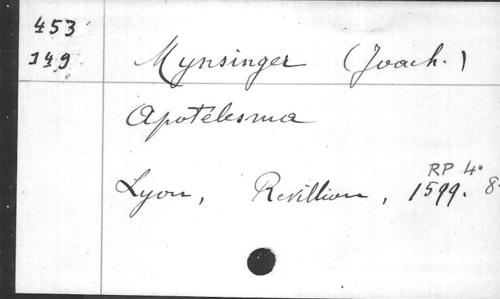 453
149
Mynsinger (Joach.)
Apotelesma
RP 4°
Lyon, Revillion, 1599. 8